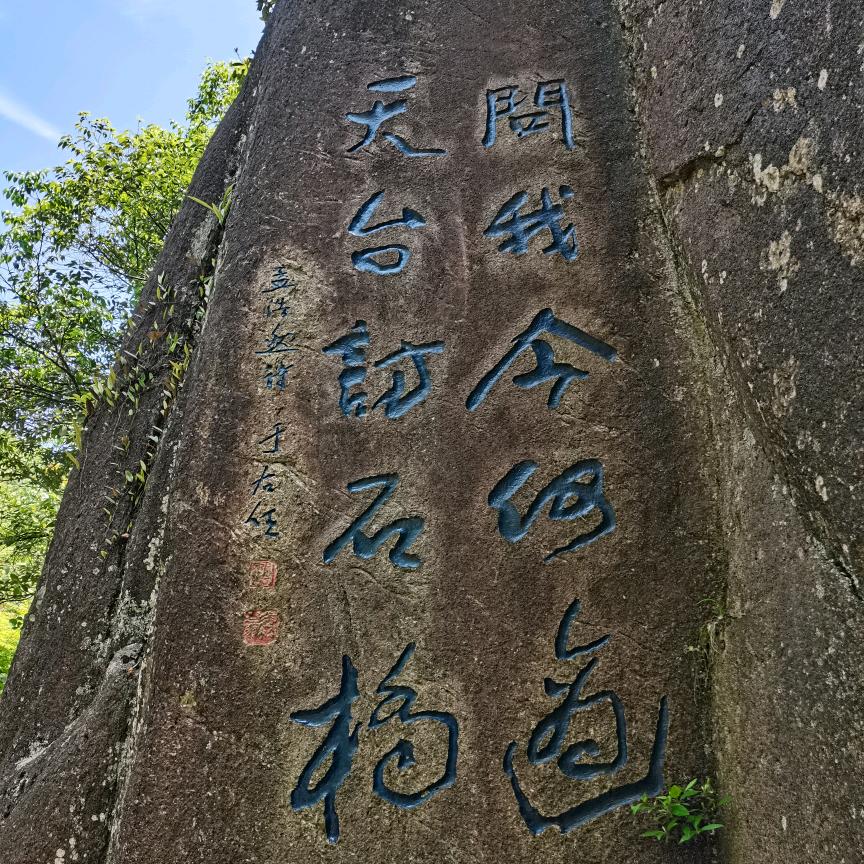 問我今何適
天台訪石橋
孟浩然詩 于右任